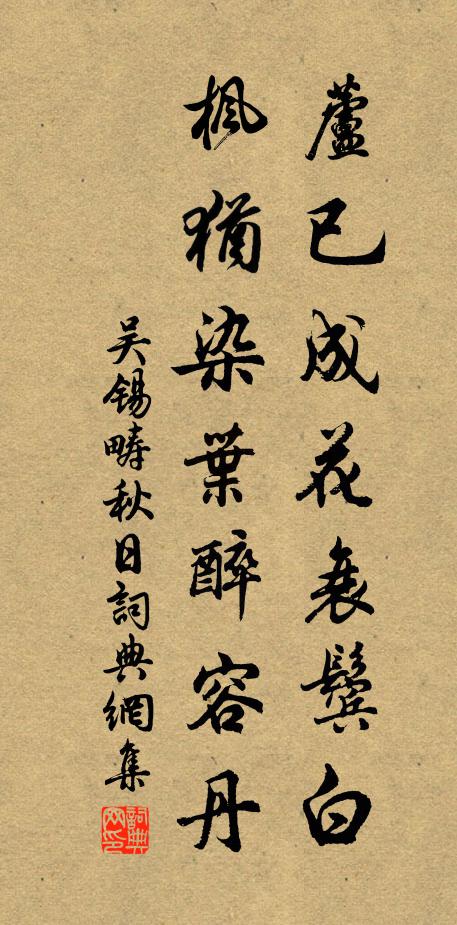 蘆已成花衰鬢白
楓猶染葉醉容丹
吴錫疇秋日詞典網集
詞典网印